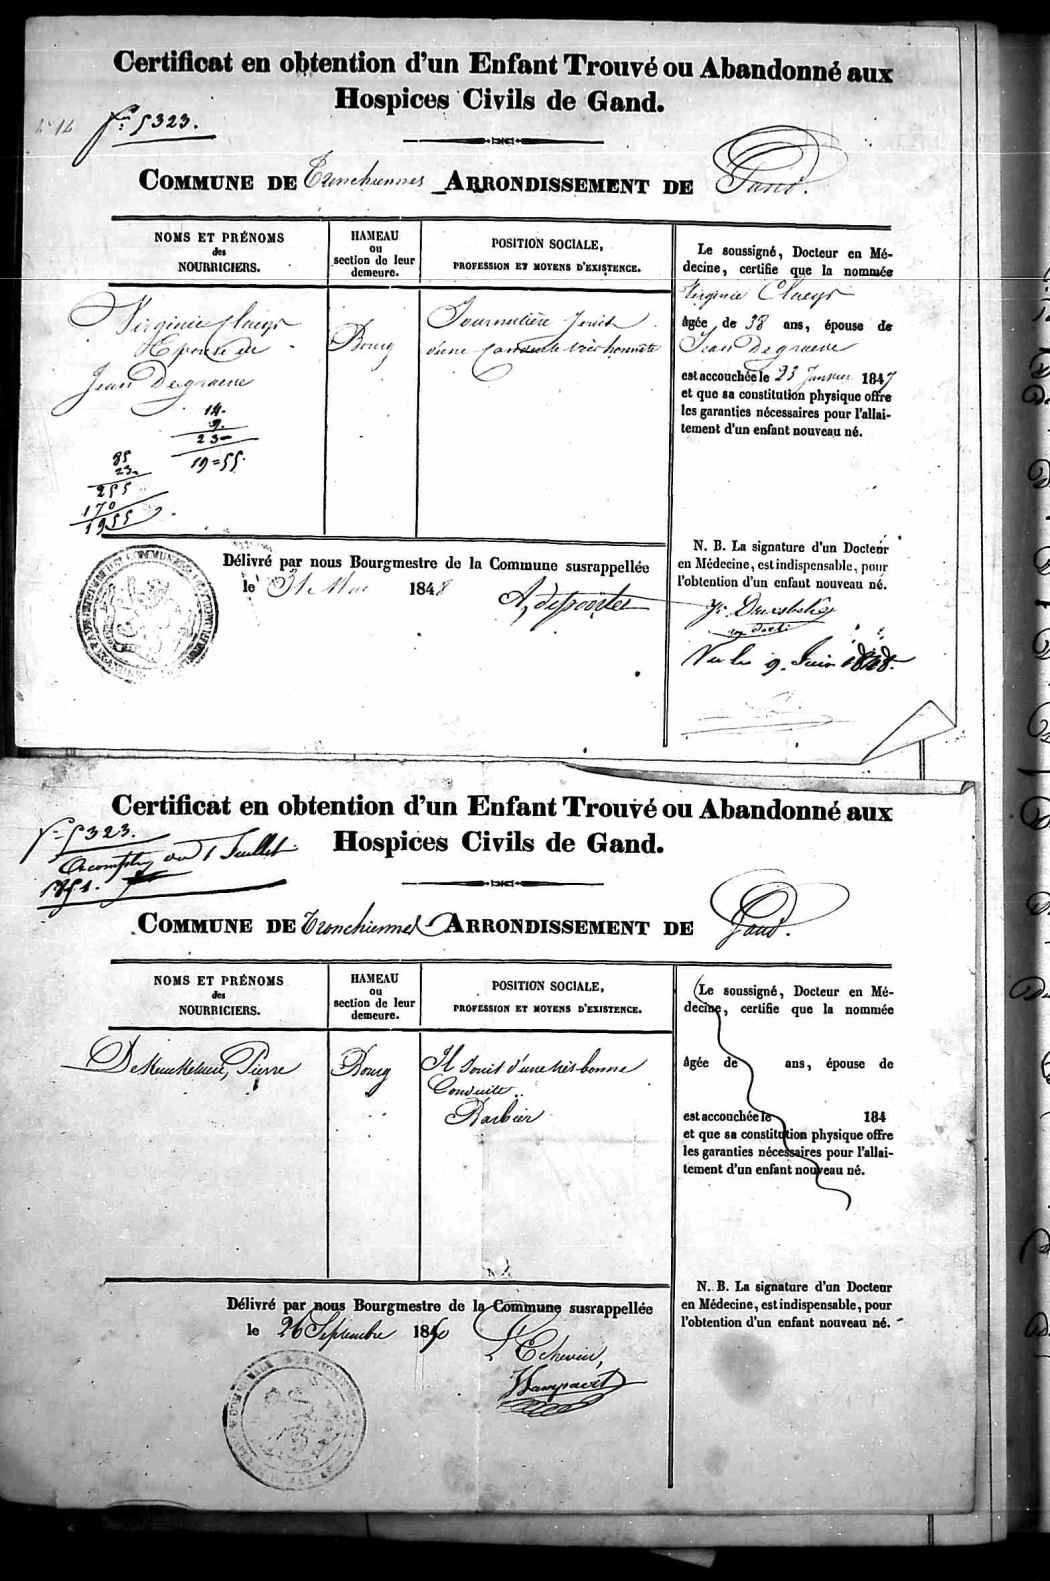 Certificat en obtention d'un Enfant Trouvé ou Abandonné aux
Hospices Civils de Gand.
5323.
COMMUNE DE Tronchiennes ARRONDISSEMENT DE Gand.
NOMS ET PRÉNOMS
des
NOURRICIERS.
HAMEAU
ou
section de leur
demeure.
POSITION SOCIALE,
PROFESSION ET MOYENS D'EXISTENCE.
Virginie Claeys
Epouse de
Jean Degraeve
14.
9.
23
19=55.
85
23
255
170
1955
Bourg
Journalière jouit
d'une conduite très honnête
Le soussigné, Docteur en Mé-
decine, certifie que la nommée
Virginie Claeys
âgée de 38 ans, épouse de
Jean Degraeve
est accouchée le 23 Janvier 1847
et que sa constitution physique offre
les garanties nécessaires pour l'allai-
tement d'un enfant nouveau né.
N. B. La signature d'un Docteur
en Médecine, est indispensable, pour
l'obtention d'un enfant nouveau né.
Vu le 9. Juin 1848.
Délivré par nous Bourgmestre de la Commune susrappellée
le 31 Mai 1848
Certificat en obtention d'un Enfant Trouvé ou Abandonné aux
Hospices Civils de Gand.
5323.
au 1 Juillet
1851.
COMMUNE DE Tronchiennes ARRONDISSEMENT DE Gand.
NOMS ET PRÉNOMS
des
NOURRICIERS.
HAMEAU
ou
section de leur
demeure.
POSITION SOCIALE,
PROFESSION ET MOYENS D'EXISTENCE.
Pierre
Bourg
Il jouit d'une très bonne
Conduite
Barbier
Le soussigné, Docteur en Mé-
decine, certifie que la nommée
âgée de ans, épouse de
est accouchée le 184
et que sa constitution physique offre
les garanties nécessaires pour l'allai-
tement d'un enfant nouveau né.
N. B. La signature d'un Docteur
en Médecine, est indispensable, pour
l'obtention d'un enfant nouveau né.
Délivré par nous Bourgmestre de la Commune susrappellée
le 26 Septembre 1850
L'Echevin,